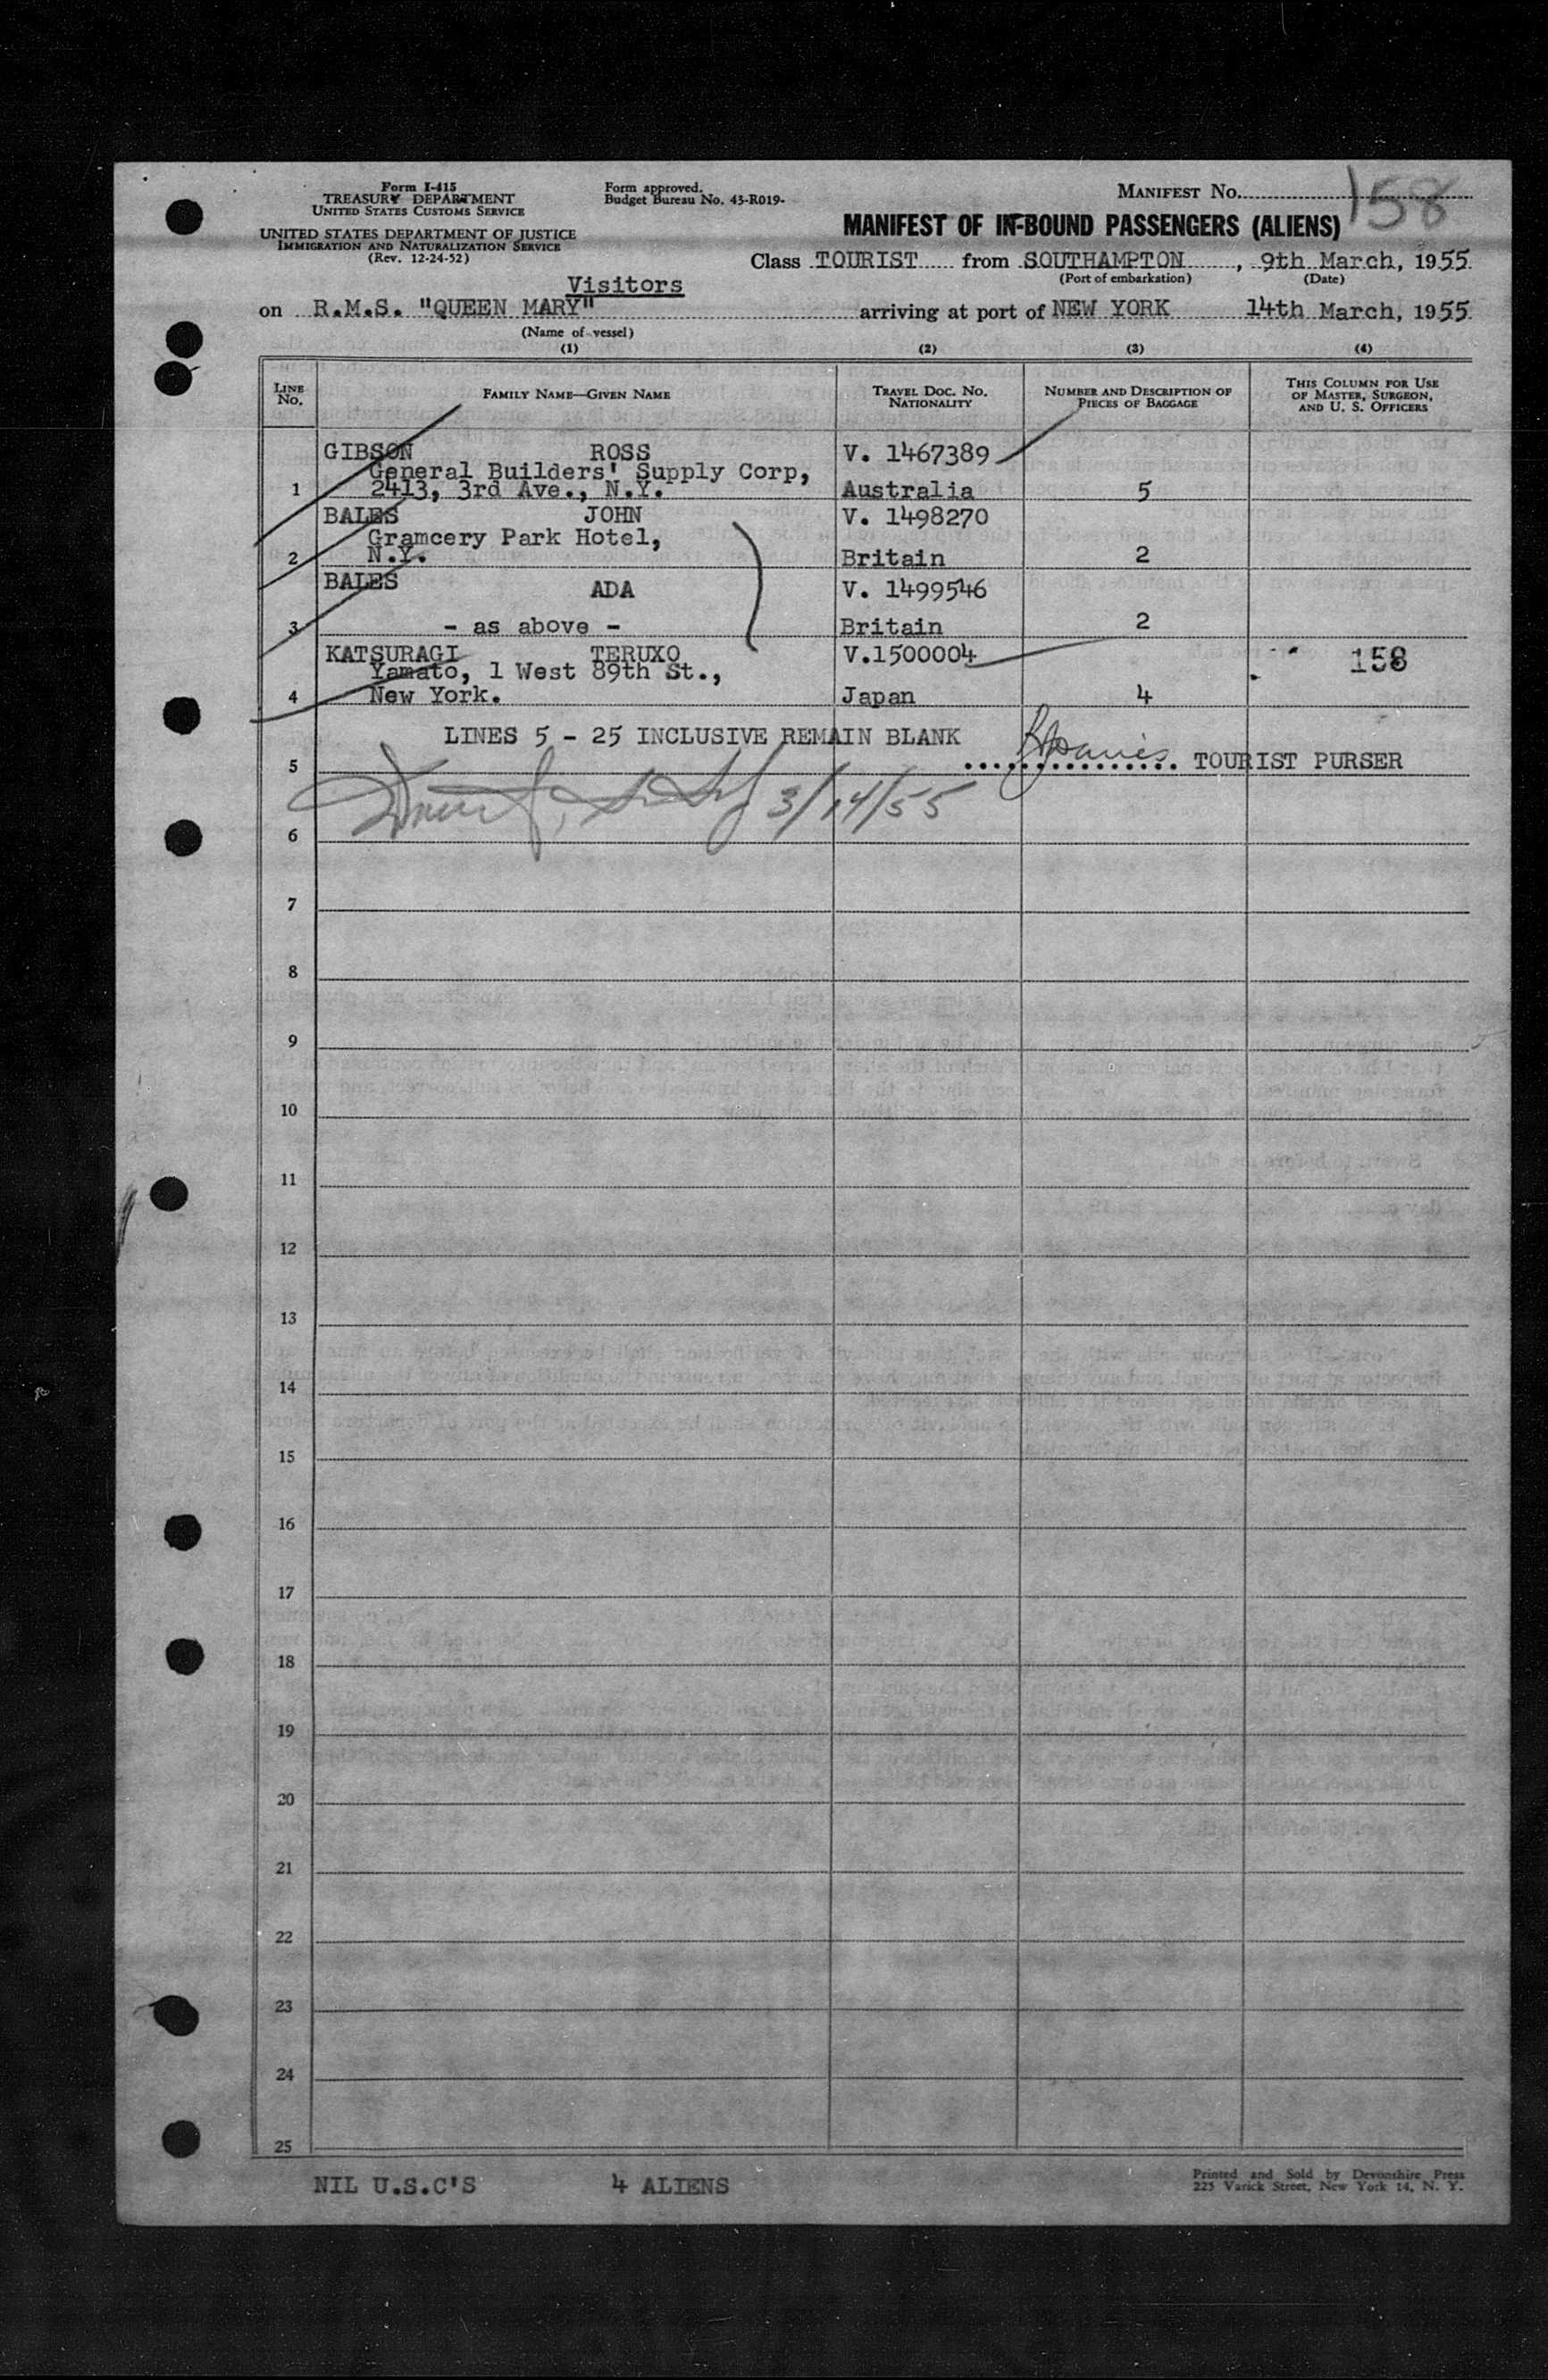 Form I-415
TREASURY DEPARTMENT
UNITED STATES CUSTOMS SERVICE
UNITED STATES DEPARTMENT OF JUSTICE
IMMIGRATION AND NATURALIZATION SERVICE
(Rev. 12-24-52)
Form approved.
Budget Bureau No. 43-R019-
MANIFEST NO. 158
MANIFEST OF IN-BOUND PASSENGERS (ALIENS)
Class TOURIST from SOUTHAMPTON, 9th March, 1955
(Port of embarkation) (Date)
Visitors
on R.M.S. "QUEEN MARY" arriving at port of NEW YORK 14th March, 1955
(Name of vessel)
(1) (2) (3) (4)
LINE No. FAMILY NAME—GIVEN NAME TRAVEL DOC. NO. NATIONALITY NUMBER AND DESCRIPTION OF PIECES OF BAGGAGE THIS COLUMN FOR USE OF MASTER, SURGEON, AND U. S. OFFICERS
GIBSON ROSS V. 1467389
General Builders' Supply Corp,
1 2413, 3rd Ave., N.Y. Australia 5
BALES JOHN V. 1498270
Gramcery Park Hotel,
2 N.Y. Britain 2
BALES ADA V. 1499546
3 - as above - Britain 2
KATSURAGI TERUXO V.1500004 158
Yamato, 1 West 89th St.,
4 New York. Japan 4
LINES 5 - 25 INCLUSIVE REMAIN BLANK
5 TOURIST PURSER
3/14/55
6
7
8
9
10
11
12
13
14
15
16
17
18
19
20
21
22
23
24
25
NIL U.S.C'S 4 ALIENS
Printed and Sold by Devonshire Press
225 Varick Street, New York 14, N. Y.